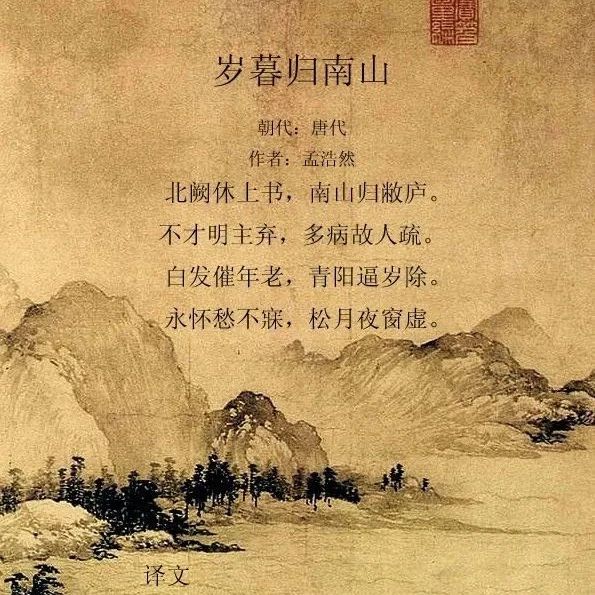 岁暮归南山
朝代：唐代
作者：孟浩然
北阙休上书，南山归敝庐。
不才明主弃，多病故人疏。
白发催年老，青阳逼岁除。
永怀愁不寐，松月夜窗虚。
译文